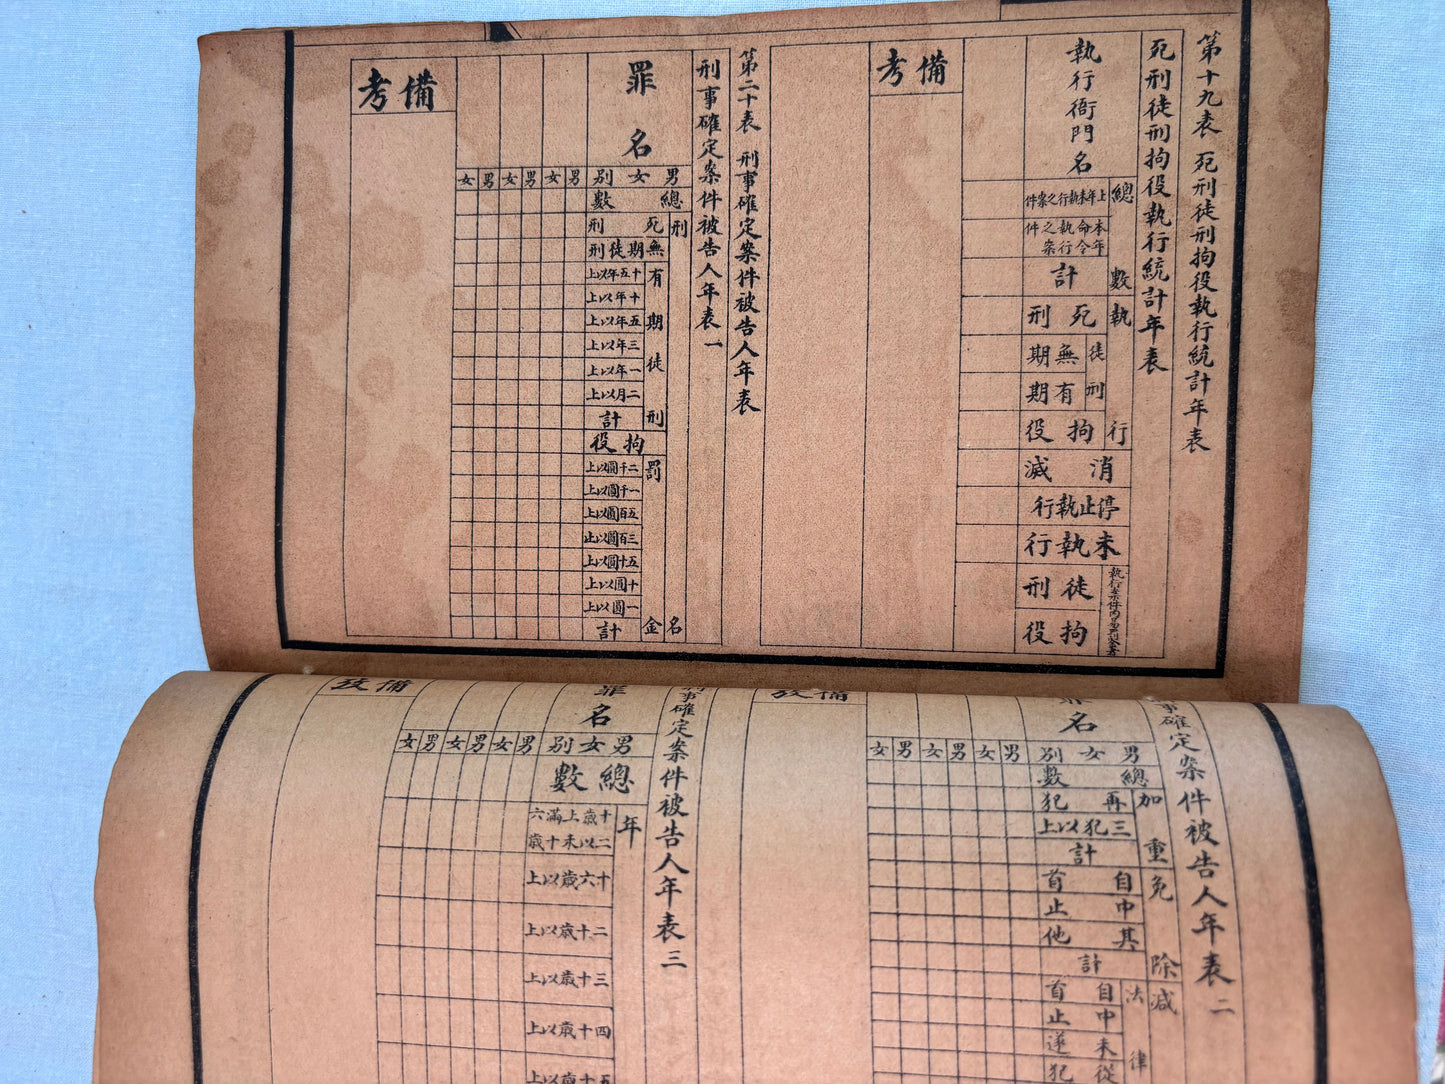 第十九表 死刑徒刑拘役執行統計年表
死刑徒刑拘役執行統計年表
執行衙門名
總數
上年未執行之案件
本年命令執行之案件
計
執行
死刑
徒刑
無期
有期
拘役
消滅
停止執行
未執行
徒刑
拘役
備考
第二十表 刑事確定案件被告人年表
刑事確定案件被告人年表一
罪名
男女別
男女男女男女
總數
刑名
死刑
無期徒刑
有期徒刑
十五年以上
十年以上
五年以上
三年以上
一年以上
二月以上
計
拘役
罰金
二千圓以上
一千圓以上
五百圓以上
三百圓以上
五十圓以上
十圓以上
一圓以上
計
備考
事確定案件被告人年表二
罪名
男女別
男女男女男女
總數
加重
再犯
三犯以上
計
免除
自首
中止
其他
計
減
法律
自首
中止
未遂
從犯
備攷
事確定案件被告人年表三
罪名
男女別
男女男女男女
總數
年
十二歲以上未滿十六歲
十六歲以上
二十歲以上
三十歲以上
四十歲以上
五十歲以上
備攷